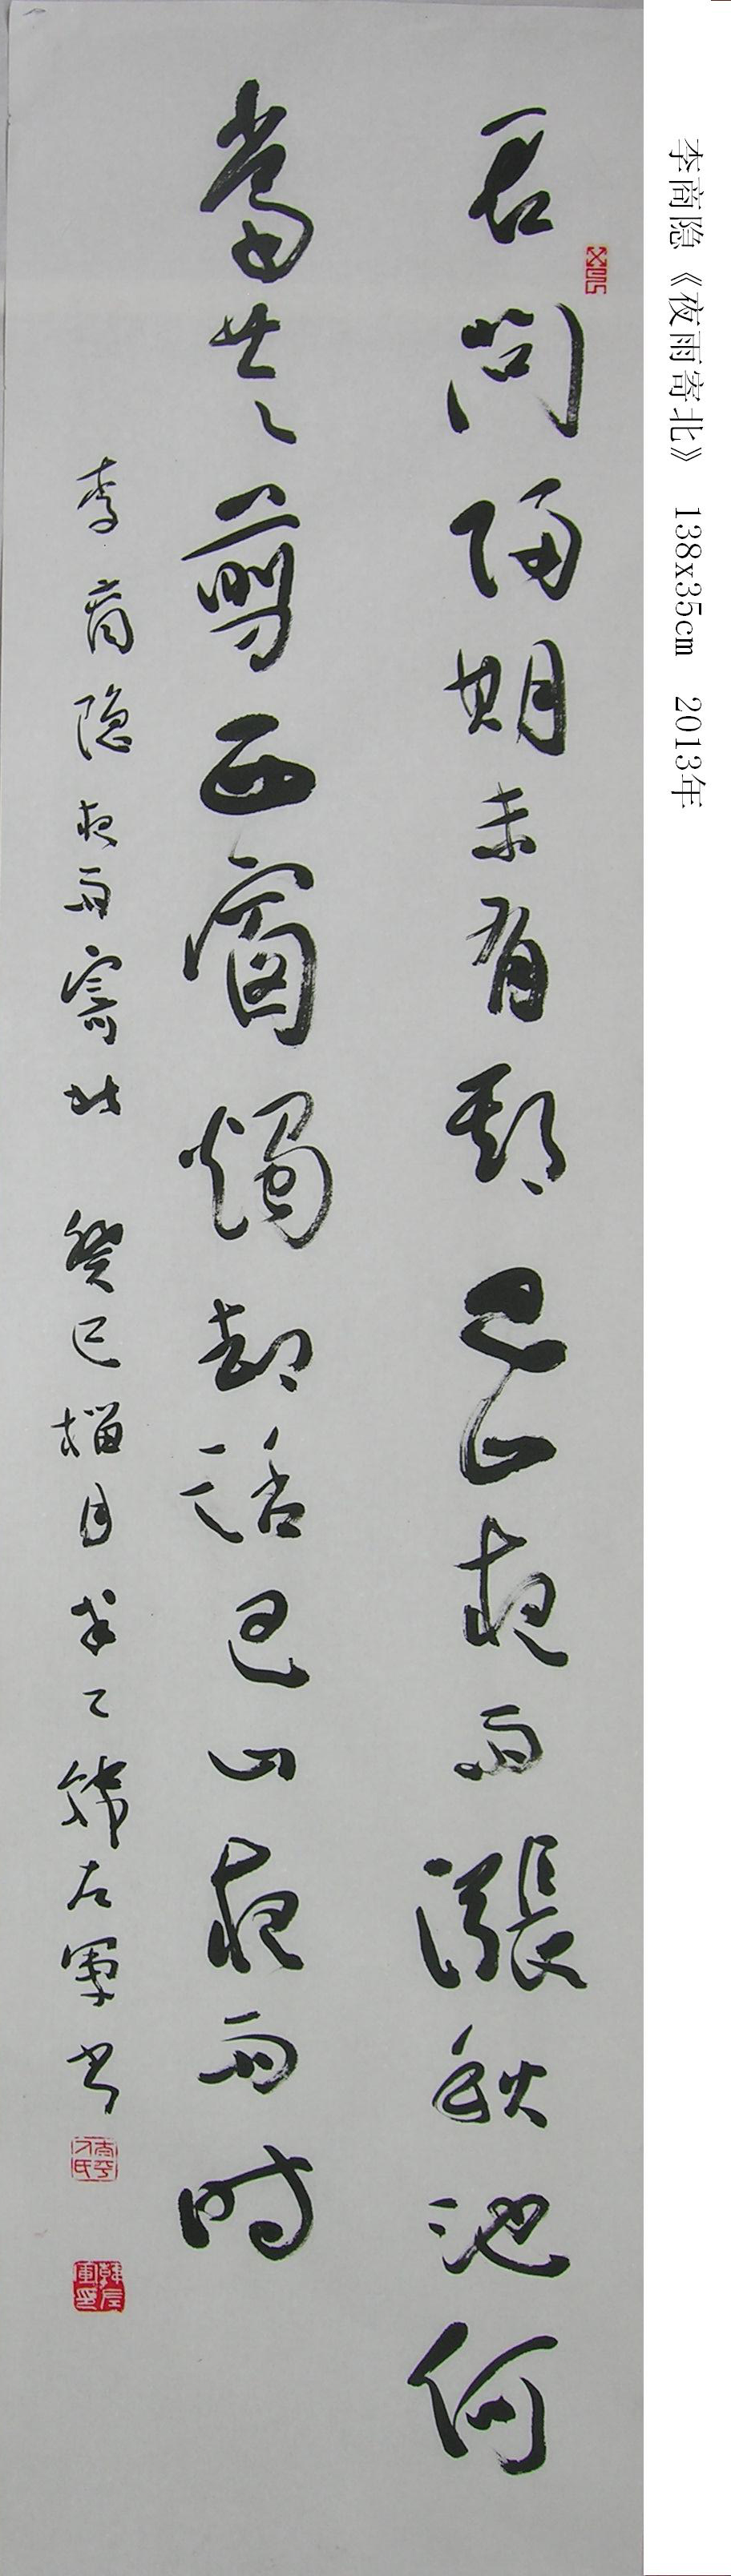 李商隐《夜雨寄北》 138x35cm 2013年
君问归期未有期巴山夜雨漲秋池何
當共剪西窗燭却话巴山夜雨时
李商隐夜雨寄北 癸巳榴月 韩左军书